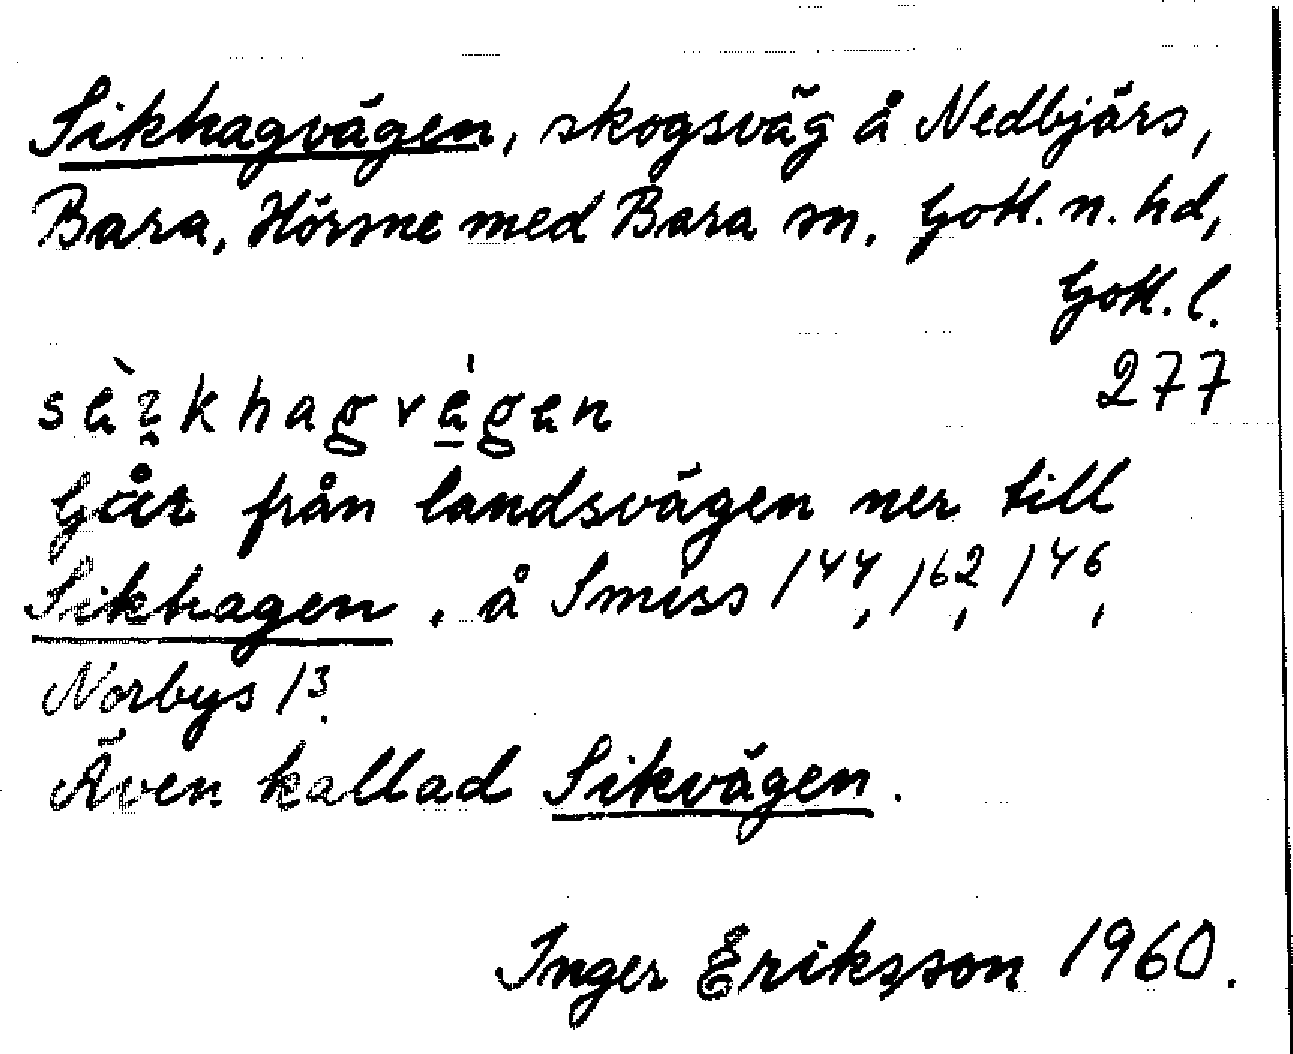 Sikhagvägen, skogsväg å Nedbjärs,
Bara, Hörsne med Bara sn. Gotl. n. hd,
Gotl. l.
277
Går från landsvägen ner till
Sikhagen. å Smiss 1⁴⁴, 1⁶², 1⁴⁶,
Norbys 1³.
Även kallad Sikvägen.
Inger Eriksson 1960.